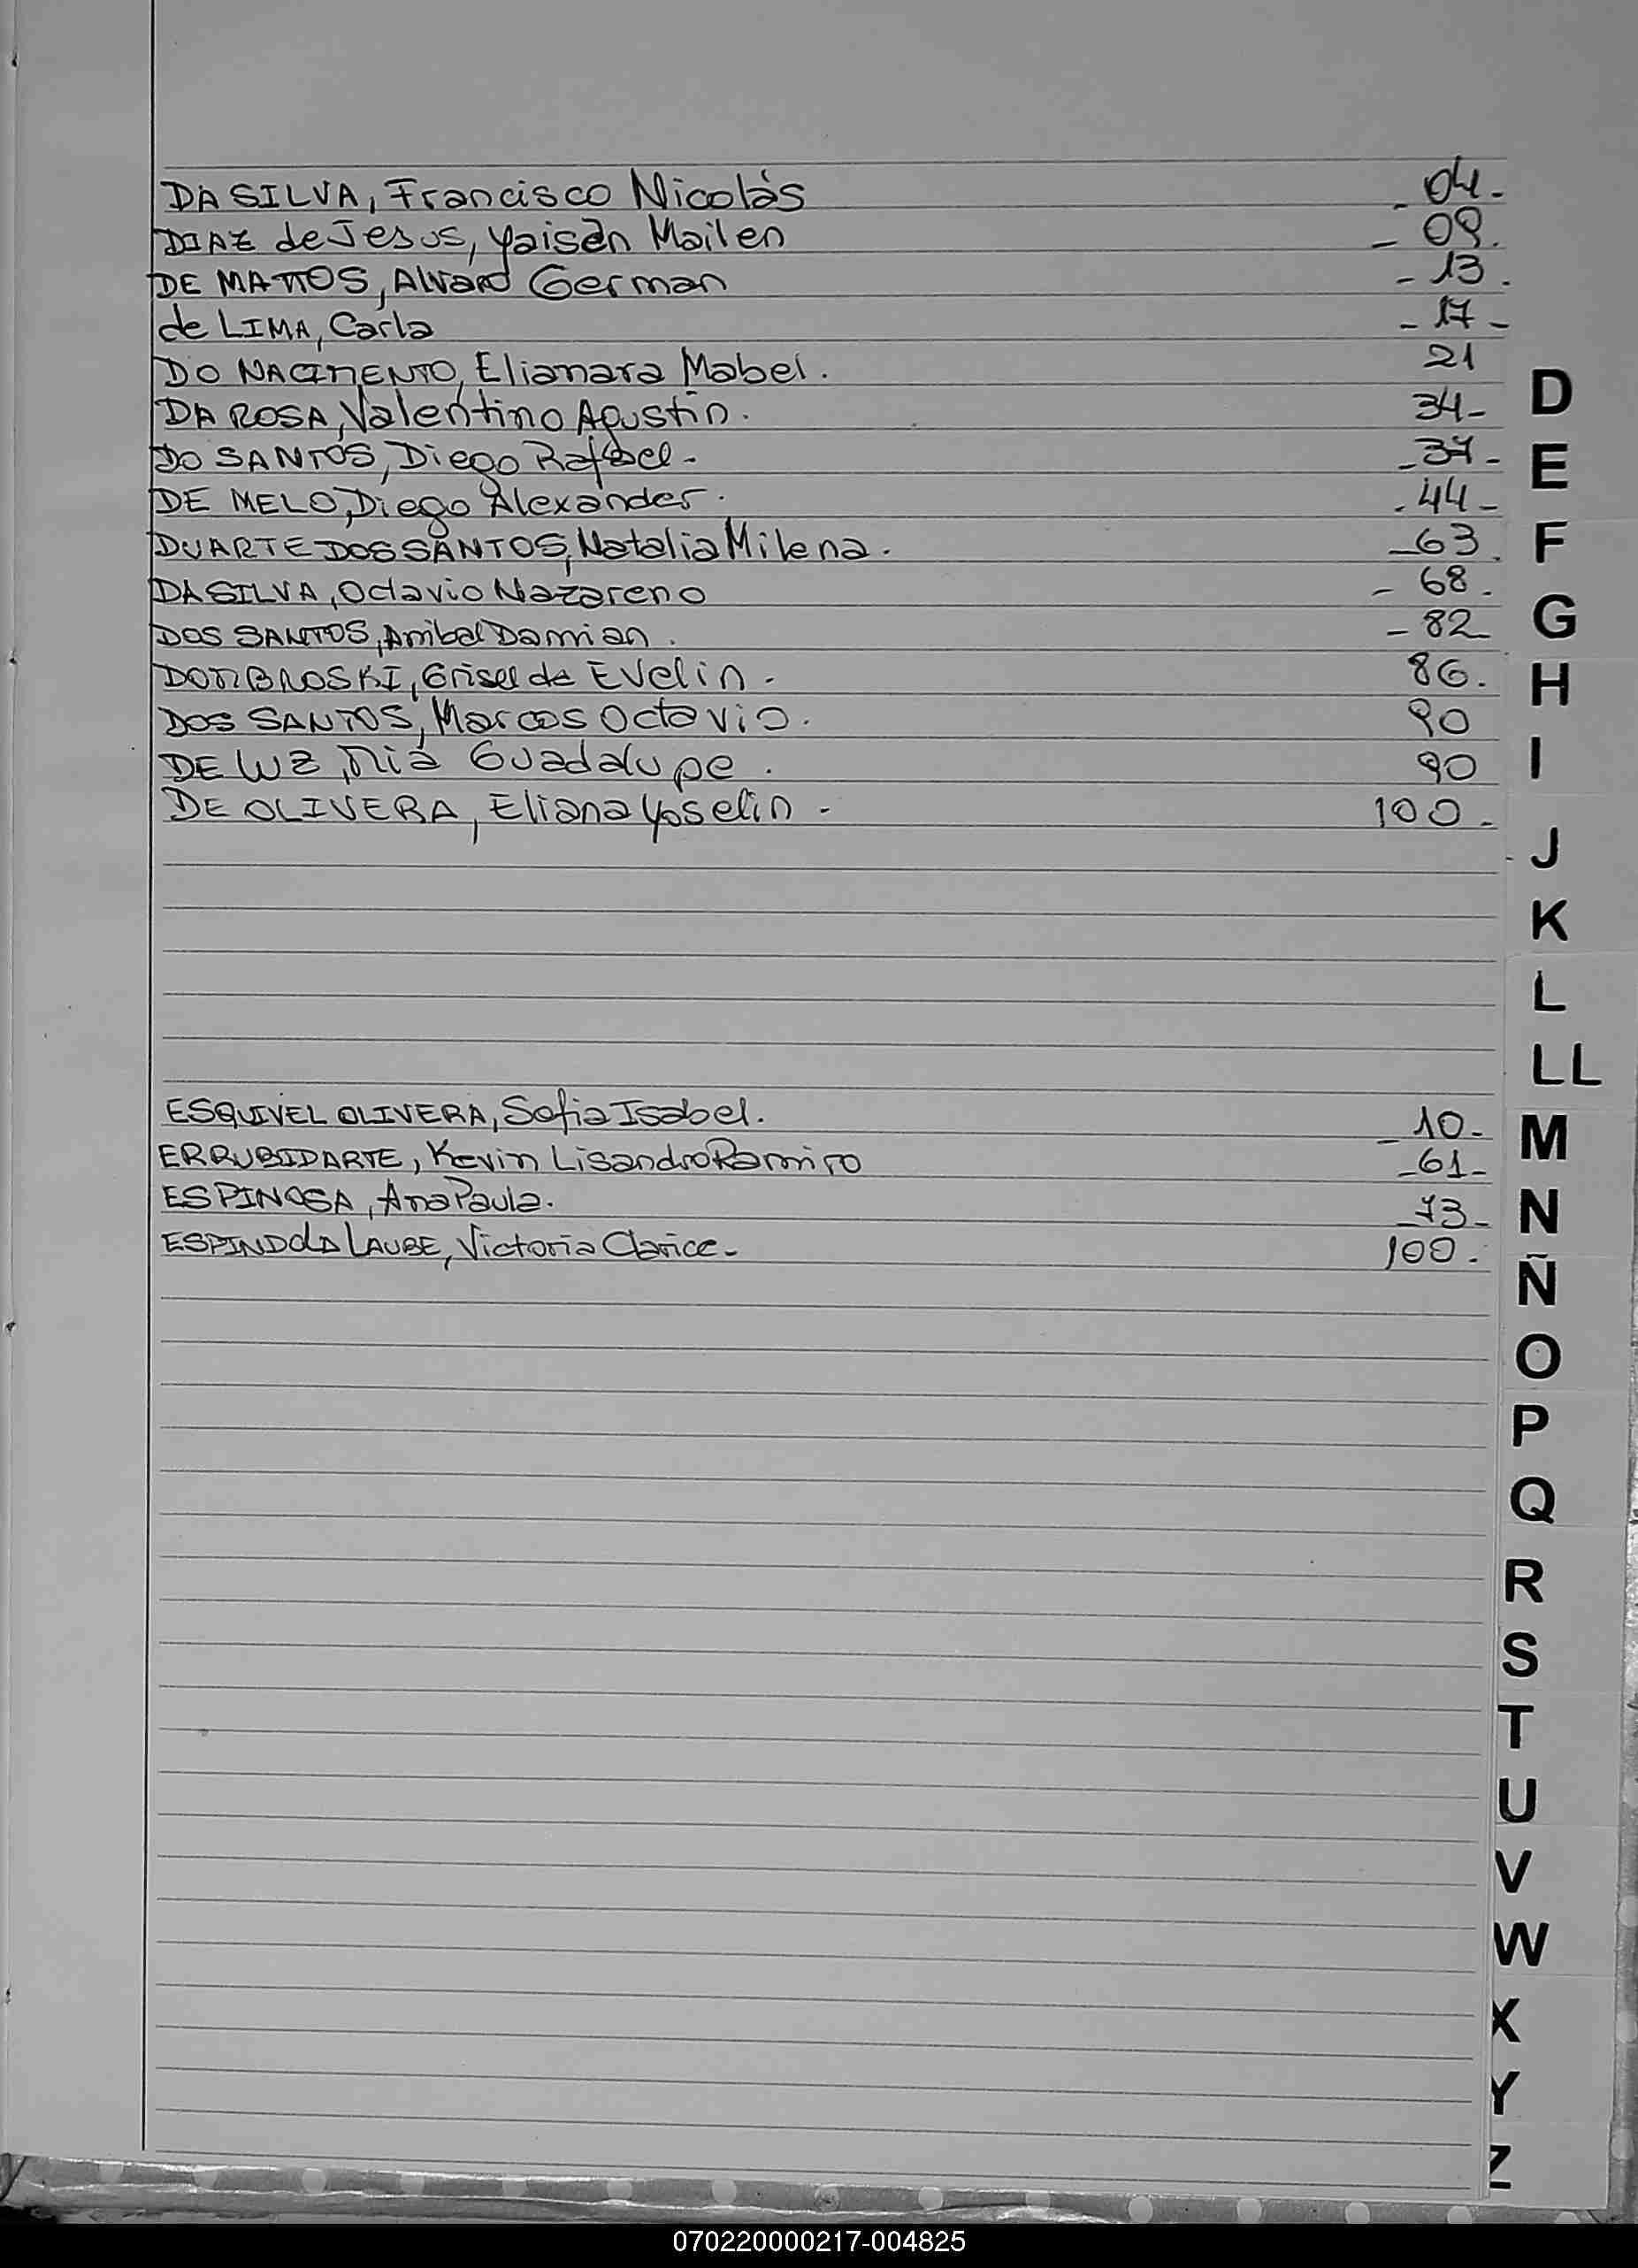 DA SILVA, Francisco Nicolás - 04-
DIAZ de Jesus, Yaisan Mailen - 09.
DE MATTOS, Alvaro German - 13.
de LIMA, Carla - 17 -
DO NACIMENTO, Elianara Mabel. 21
DA ROSA, Valentino Agustin. 34-
DO SANTOS, Diego Rafael - -37-
DE MELO, Diego Alexander. -44-
DUARTE DOS SANTOS, Natalia Milena. -63.
DA SILVA, Octavio Nazareno - 68.
DOS SANTOS, Anibal Damian. - 82-
DOMBROSKI, Griselda Evelin - 86.
DOS SANTOS, Marcos Octavio. 90
DE LUZ, Mia Guadalupe. 90
DE OLIVERA, Eliana Yoselin - 100-
ESQUIVEL OLIVERA, Sofia Isabel. - 10-
ERRUBIDARTE, Kevin Lisandro Ramiro -61-
ESPINOSA, Ana Paula. -73-
ESPINDOLA LAUBE, Victoria Clarice - 100.
D
E
F
G
H
I
J
K
L
LL
M
N
Ñ
O
P
Q
R
S
T
U
V
W
X
Y
Z
070220000217-004825